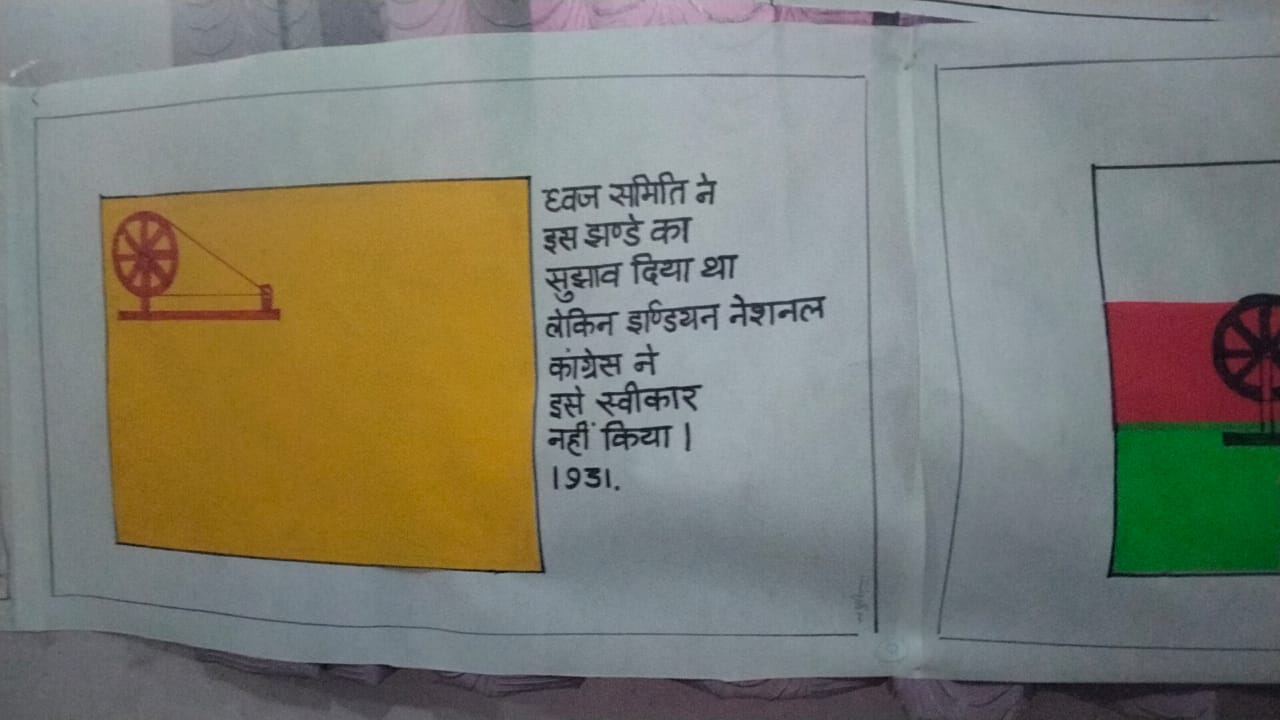 ध्वज समिति ने
इस झण्डे का
सुझाव दिया था
लेकिन इण्डियन नेशनल
कांग्रेस ने
इसे स्वीकार
नहीं किया।
1931.